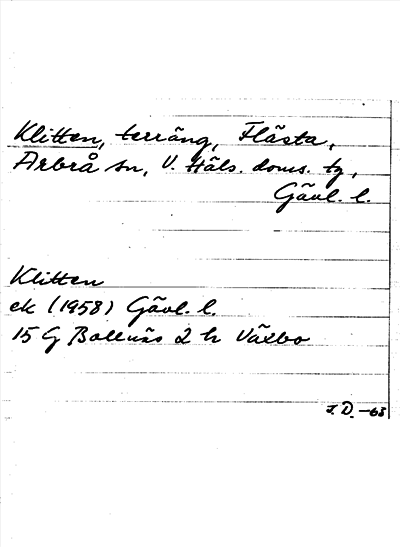 Klitten, terräng, Flästa,
Arbrå sn, V. Häls. doms. tg,
Gävl. l.
Klitten
ek (1958) Gävl. l.
15 G Bollnäs 2 h Växbo
I.D. -63